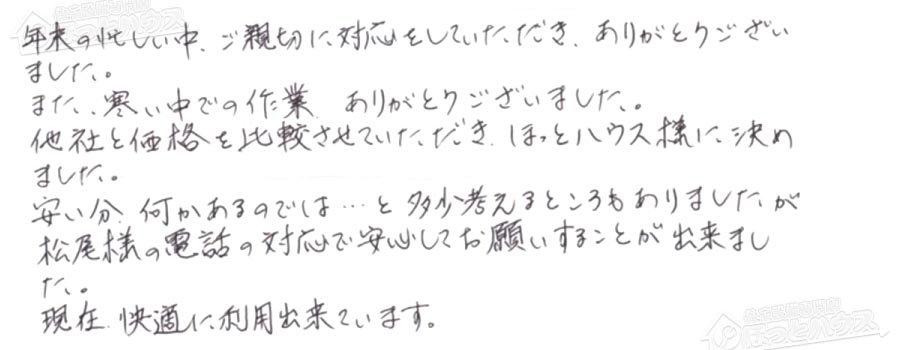 年末の忙しい中、ご親切に対応をしていただき、ありがとうござい
ました。
また、寒い中での作業、ありがとうございました。
他社と価格を比較させていただき、ほっとハウス様に決め
ました。
安い分、何かあるのでは…と多少考えるところもありましたが
松尾様の電話の対応で安心してお願いすることが出来まし
た。
現在、快適に利用出来ています。
ほっとハウス